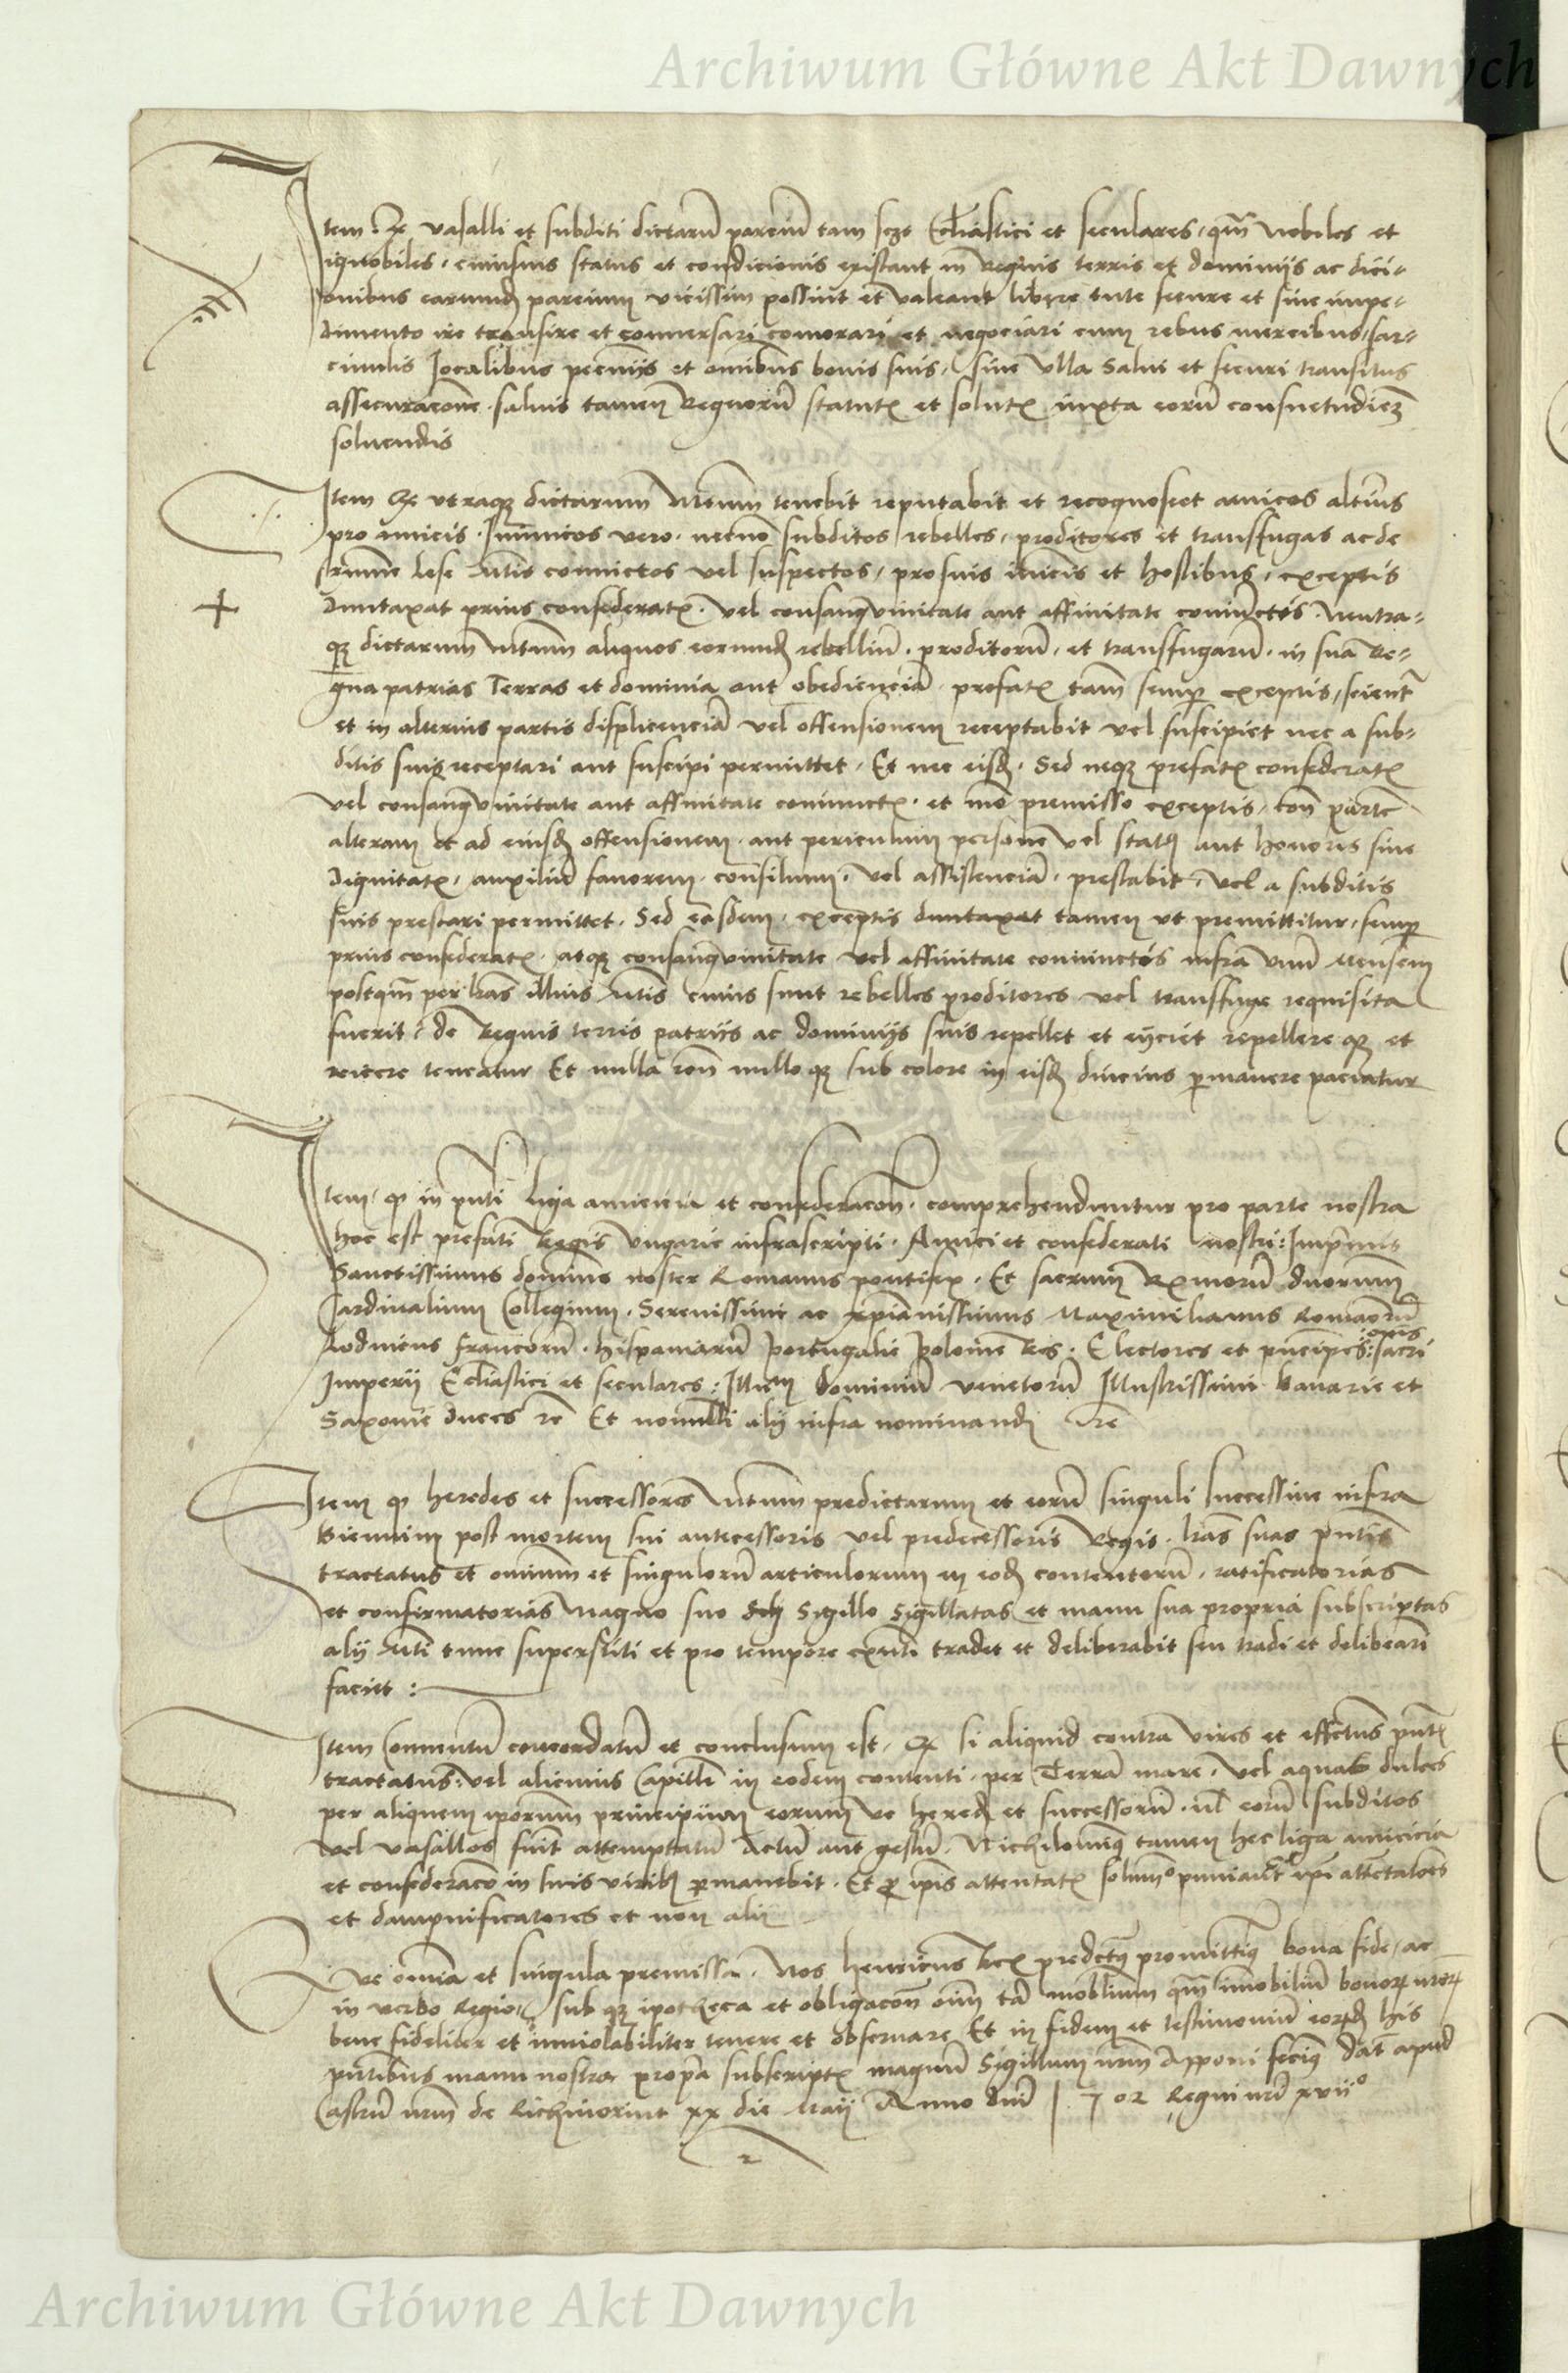 Archiwum Główne Akt Dawnych
Item Qͫ vasalli et subditi dictarū parciū tam scʒt Ecclīastici et seculares, qm̄ nobiles et
ignobiles, cuiusuis status et condicionis existant in Regnis terris et dominijs ac dici-
onibus earumdꝫ parcium vicissim possint et valeant libere tute secure et sine impe-
dimento ire transire et conuersari comorari et negociari cum rebus mercibus, sar-
cinulis Jocalibus pecunijs et omībus bonis suis, sine vlla salui et securi transitus
assecuracōne. saluis tamen Regnorū statutꝭ et solutꝭ iuxta eorū consuetudiēꝫ
soluendis
Item Qͫ vtraqꝫ dictarum Mtum̄ tenebit reputabit et recognoscet amicos alterīus
pro amicis. Inimicos vero. necnō subditos rebelles, proditores et transfugas ac de
crimine lese Mtis̄ conuictos vel suspectos, pro suis inīcis et hostibus, exceptis
duntaxat prius confederatꝭ. vel consanqvinitate aut affinitate coniunctos. Neutra-
qꝫ dictarum Mtum̄ aliquos eorumdꝫ rebelliū. proditorū. et transfugarū. in sua Re-
gna patrias Terras et dominia aut obedienciā. prefatꝭ tam̄ semꝑ exceptis, scientꝫ
et in alterius partis displicenciā vel offensionem receptabit vel suscipiet nec a sub-
ditis suis receptari aut suscipi permittet. Et nec eisdꝫ. Sed neqꝫ prefatꝭ confederatꝭ
vel consanqvinitate aut affinitate coniunctꝭ. et mō premisso exceptis, con̄ partē
alteram et ad eiusdꝫ offensionem. aut periculum persone vel statꝰ aut honoris siue
dignitatꝭ. auxiliū fauorem. consilium. vel assistenciā. prestabit. vel a subditis
suis prestari permittet. Sed easdem. exceptis duntaxat tamen vt premittitur. semꝑ
prius confederatꝭ. atqꝫ consanqvinitate vel affinitate coniunctos infra vnū Mensem
postqm̄ per lrās illius Mtis̄ cuius sunt rebelles proditores vel transfuge requisita
fuerit. de Regnis terris patrijs ac dominijs suis repellet et eijciet repellere qꝫ et
reicere teneatur Et nulla rōn nullo qꝫ sub colore in eisdꝫ diucius ꝑmanere paciatur
Item, qͦ in pn̄ti liga amicicia et confederacōn. comprehenduntur pro parte nostra
hoc est prefati Regis Vngarie infrascripti. Amici et confederati nostri: Imprimis
Sanctissimus dominus noster Romanus pontifex. Et sacrum Rͫmorū dn̄orum
Cardinalium Collegium. Serenissimi ac xp̄ianissimus Maximilianus Romanorū
Lodouicus Francorū. hispaniarū Portugalie Polonie Res. Electores et prīncipes: sacri
Imperij Ecc̄liastici et seculares: Illm̄ dominiū venetorū Illustrissimi Bauarie et
Saxonie duces rc̄ Et nonnulli alij infra nominandꝫ rc̄
Item qͦ heredes et successores Mtum̄ predictarum et eorū singuli successiue infra
Biennium post mortem sui antecessoris vel predecessoris Regis. lrās suas pn̄tis
tractatus et omnium et singulorū articulorum in eodꝫ contentorū. ratificatorias
et confirmatorias Magno suo Sigillo Sigillatas et manu sua propria subscriptas
alij Mtī tunc superstiti et pro tempore exn̄ti tradet et deliberabit seu tradi et deliberari
faciet:
Item Conuentū concordatū et conclusum est, Qͫ si aliquid contra vires et effectus pn̄tꝭ
tractatus: vel alicuius Capituli in eodem contenti. per Terrā mare. vel aquas dulces
per aliquem ip̄orum principum eorum ve heredꝫ et successorū. ul̄ eorū subditos
vel vasallos fuit attemptatū actū aut gestū. Nichilominꝰ tamen hec liga amicicia
et confederacō in suis viribꝰ ꝑmanebit. Et ꝓ ip̄is attentatꝭ solum puniant̄ ip̄i attētatores
et dampnificatores et non alij
Que omīa et singula premissa. Nos henricus Rex predictꝰ promittimꝰ bona fide, ac
in verbo Regio, sub qꝫ ipotheca et obligacōn oīm tā mobilium qm̄ immobiliū bonorꝝ nr̄orꝝ
bene fideliter et inuiolabiliter tenere et obseruare Et in fidem et testimoniū eorꝝdꝫ his
pn̄tibus manu nostra propā subscriptꝭ magnū Sigillum nr̄m Apponi fecimꝰ Dat̄ apud
Castrū nr̄m de Richmont xx die Maij Anno dn̄i 1702 Regni nr̄i xvijº
Archiwum Główne Akt Dawnych